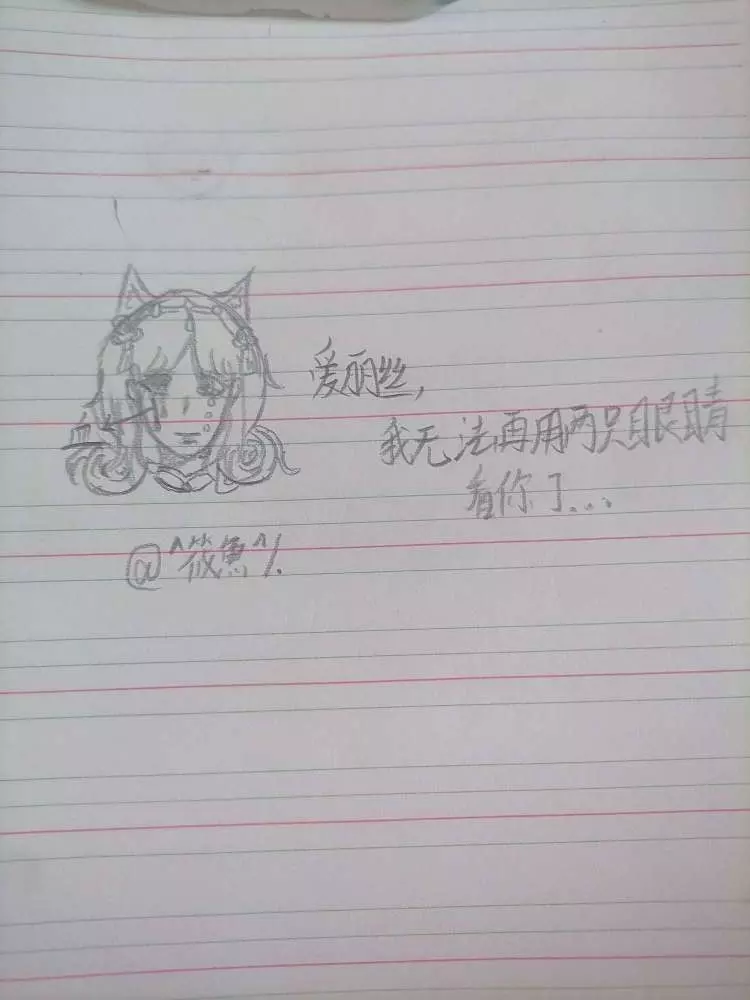 爱丽丝,
我无法再用两只眼睛
看你了...
血
@^筱魚^/.